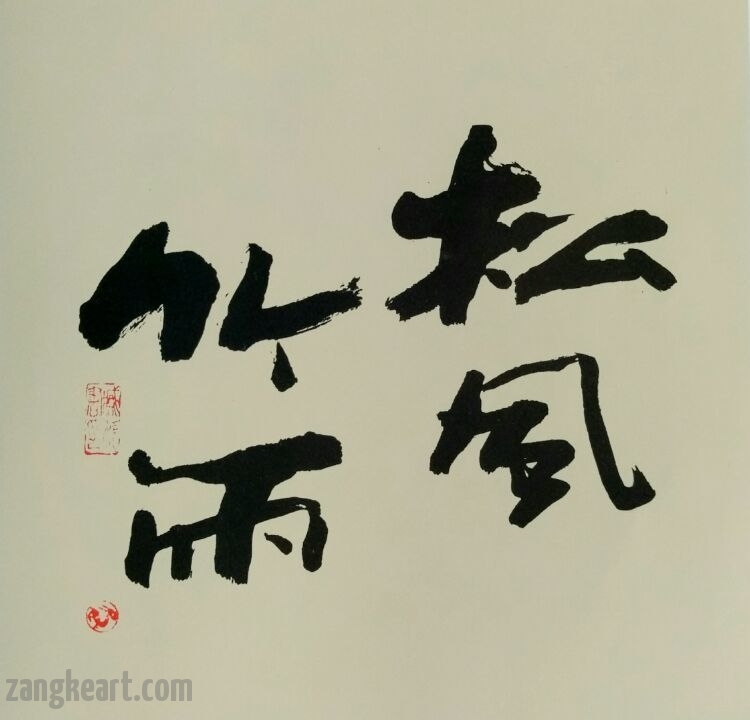 松風
竹雨
zangkeart.com